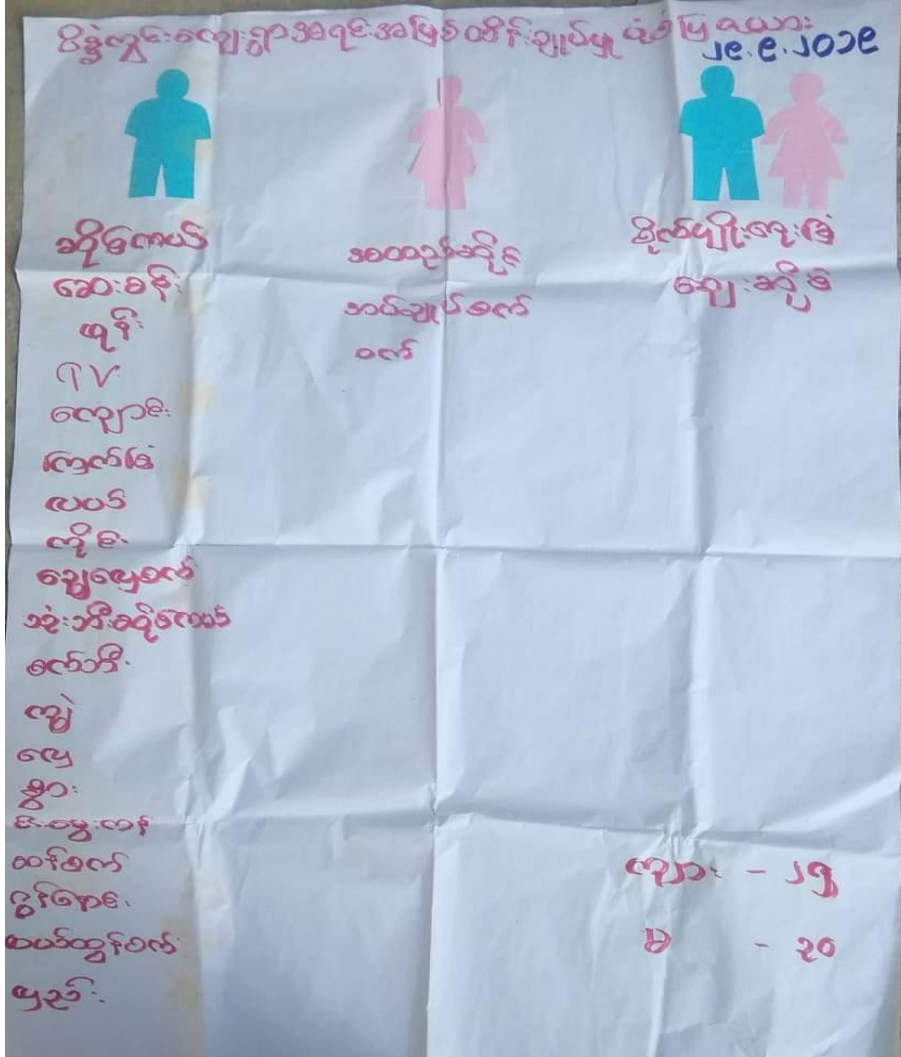 ပိန္နဲကွင်းကျေးရွာအရင်းအမြစ်ထိန်းချုပ်မှု ပုံစံပြဇယား
၂၉.၉.၂၀၁၉
ဆိုင်ကယ်
ဆေးခန်း
ဖုန်း
TV
ကျောင်း
ကြက်ခြံ
လယ်
ကိုင်း
ချွေလှေ့စက်
သုံးဘီးဆိုင်ကယ်
စက်ဘီး
ကျွဲ
လှေ
နွား
ငါးမွေးကန်
ထန်းစက်
ဂွန်ရောင်း
လယ်ထွန်စက်
လှည်း
အထည်ဆိုင်
အပ်ချုပ်စက်
ဝက်
စိုက်ပျိုးရေးခြံ
ဈေးဆိုင်
ကျား - ၂၅
မ - ၃၀